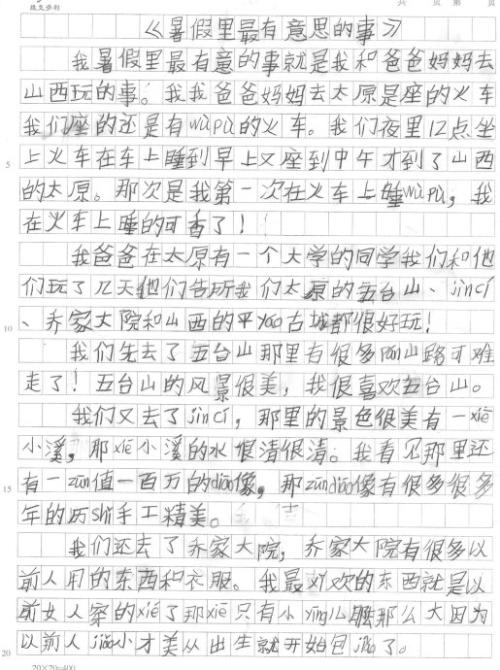 《暑假里最有意思的事》
我暑假里最有意的事就是我和爸爸妈妈去
山西玩的事。我我爸爸妈妈去太原是座的火车
我们座的还是有wòpù的火车。我们夜里12点坐
上火车在车上睡到早上又座到中午才到了山西
5
的太原。那次是我第一次在火车上睡wòpù，我
在火车上睡的可香了！
我爸爸在太原有一个大学的同学我们和他
们玩了几天他们告所我们太原的五台山、jìncí
10
、乔家大院和山西的平yáo古城都很好玩！
我们先去了五台山那里有很多山路可难
走了！五台山的风景很美，我很喜欢五台山。
我们又去了jìncí，那里的景色很美有一xiē
小溪，那xiē小溪的水很清很清。我看见那里还
15
有一zūn值一百万的diāo像，那zūndiāo像有很多很多
年的历shǐ手工精美。
我们还去了乔家大院，乔家大院有很多以
前人用的东西和衣服。我最对欢的东西就是以
前女人穿的xié了那xié只有小yīng儿脚那么大因为
20
以前人jiǎo小才美从出生就开始包jiǎo了。
20×20=400